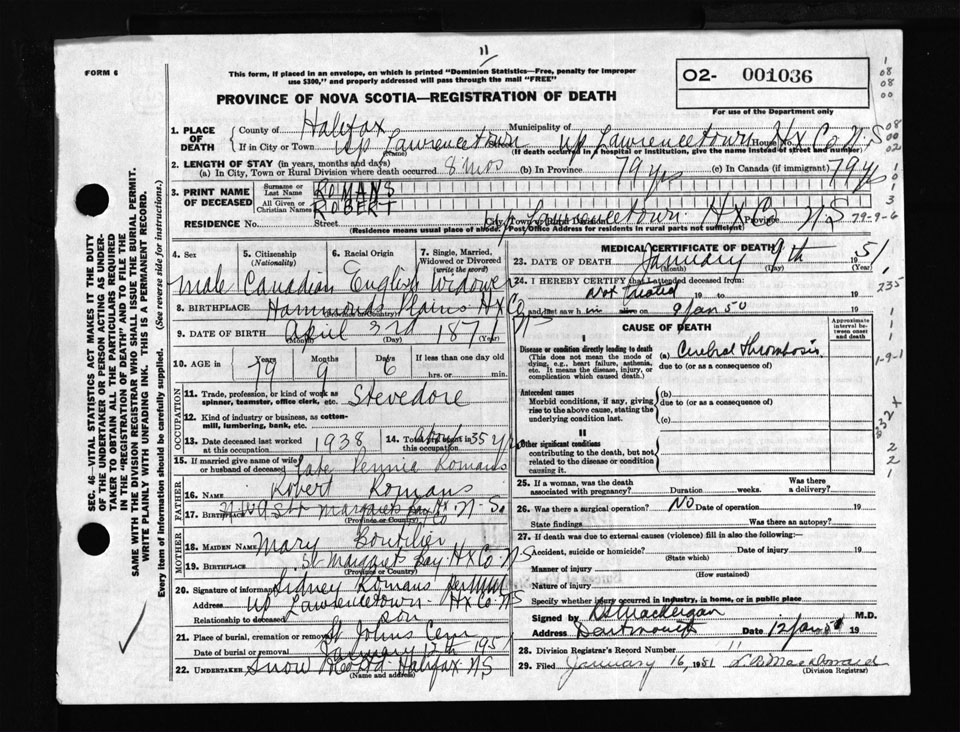 11
FORM 6
This form, if placed in an envelope, on which is printed "Dominion Statistics—Free, penalty for improper
use $300," and properly addressed will pass through the mail "FREE"
02- 001036
PROVINCE OF NOVA SCOTIA—REGISTRATION OF DEATH
For use of the Department only
1. PLACE OF DEATH
County of Halifax Municipality of
If in City or Town Up Lawrencetown Up Lawrencetown Hx Co N.S House No.
(Name) (If death occurred in a hospital or institution, give the name instead of street and number)
2. LENGTH OF STAY (in years, months and days)
(a) In City, Town or Rural Division where death occurred 8 mos (b) In Province 79 yrs (c) In Canada (if immigrant) 79 yrs
3. PRINT NAME OF DECEASED
Surname or Last Name ROMANS
All Given or Christian Names ROBERT
RESIDENCE No. Street Up Lawrencetown Hx Co Province NS
79-9-6
(Residence means usual place of abode. Post Office Address for residents in rural parts not sufficient)
4. Sex Male
5. Citizenship (Nationality) Canadian
6. Racial Origin English
7. Single, Married, Widowed or Divorced (write the word)
8. BIRTHPLACE Hammonds Plains Hx Co NS
(Province or Country)
9. DATE OF BIRTH April 3rd 1871
(Month) (Day) (Year)
10. AGE 79 Years 9 Months 6 Days If less than one day old
hrs. or min.
OCCUPATION
11. Trade, profession, or kind of work as
spinner, teamster, office clerk, etc. Stevedore
12. Kind of industry or business, as cotton-
mill, lumbering, bank, etc.
13. Date deceased last worked
at this occupation 1938
14. Total years spent in
this occupation 35 yrs
15. If married give name of wife
or husband of deceased Late Romans
FATHER
16. Name Robert Romans
17. Birthplace St Margarets Bay Hx Co N.S.
(Province or Country)
MOTHER
18. MAIDEN NAME Mary Boutilier
19. BIRTHPLACE St Margarets Bay Hx Co NS
(Province or Country)
20. Signature of informant Sidney Romans
Address Up Lawrencetown Hx Co. NS
Relationship to deceased son
21. Place of burial, cremation or removal St Johns Cem
Date of burial or removal January 12th 1951
22. UNDERTAKER Snow & Co Ltd Halifax NS
(Name and address)
MEDICAL CERTIFICATE OF DEATH
23. DATE OF DEATH January 9th 1951
(Month) (Day) (Year)
24. I HEREBY CERTIFY that I attended deceased from:
Not treated 19 to 19
and last saw him alive on 9 Jan 50 19
CAUSE OF DEATH
Approximate interval between onset and death
I
Disease or condition directly leading to death
(This does not mean the mode of
dying, e.g., heart failure, asthenia,
etc. It means the disease, injury, or
complication which caused death.)
(a) Cerebral Thrombosis
due to (or as a consequence of)
Antecedent causes
Morbid conditions, if any, giving
rise to the above cause, stating the
underlying condition last.
(b)
due to (or as a consequence of)
(c)
II
Other significant conditions
contributing to the death, but not
related to the disease or condition
causing it.
25. If a woman, was the death
associated with pregnancy? Duration weeks. Was there
a delivery?
26. Was there a surgical operation? NO Date of operation 19
State findings Was there an autopsy?
27. If death was due to external causes (violence) fill in also the following:
Accident, suicide or homicide? Date of injury 19
(State which)
Manner of injury
(How sustained)
Nature of injury
Specify whether injury occurred in industry, in home, or in public place
Signed by M.D.
Address Dartmouth Date 12 Jan 19
28. Division Registrar's Record Number 11
29. Filed January 16 1951
SEC. 46—VITAL STATISTICS ACT MAKES IT THE DUTY
OF THE UNDERTAKER OR PERSON ACTING AS UNDER-
TAKER TO OBTAIN ALL THE PARTICULARS REQUIRED
IN THE "REGISTRATION OF DEATH" AND TO FILE THE
SAME WITH THE DIVISION REGISTRAR WHO SHALL ISSUE THE BURIAL PERMIT.
WRITE PLAINLY WITH UNFADING INK. THIS IS A PERMANENT RECORD.
Every item of information should be carefully supplied. (See reverse side for instructions.)